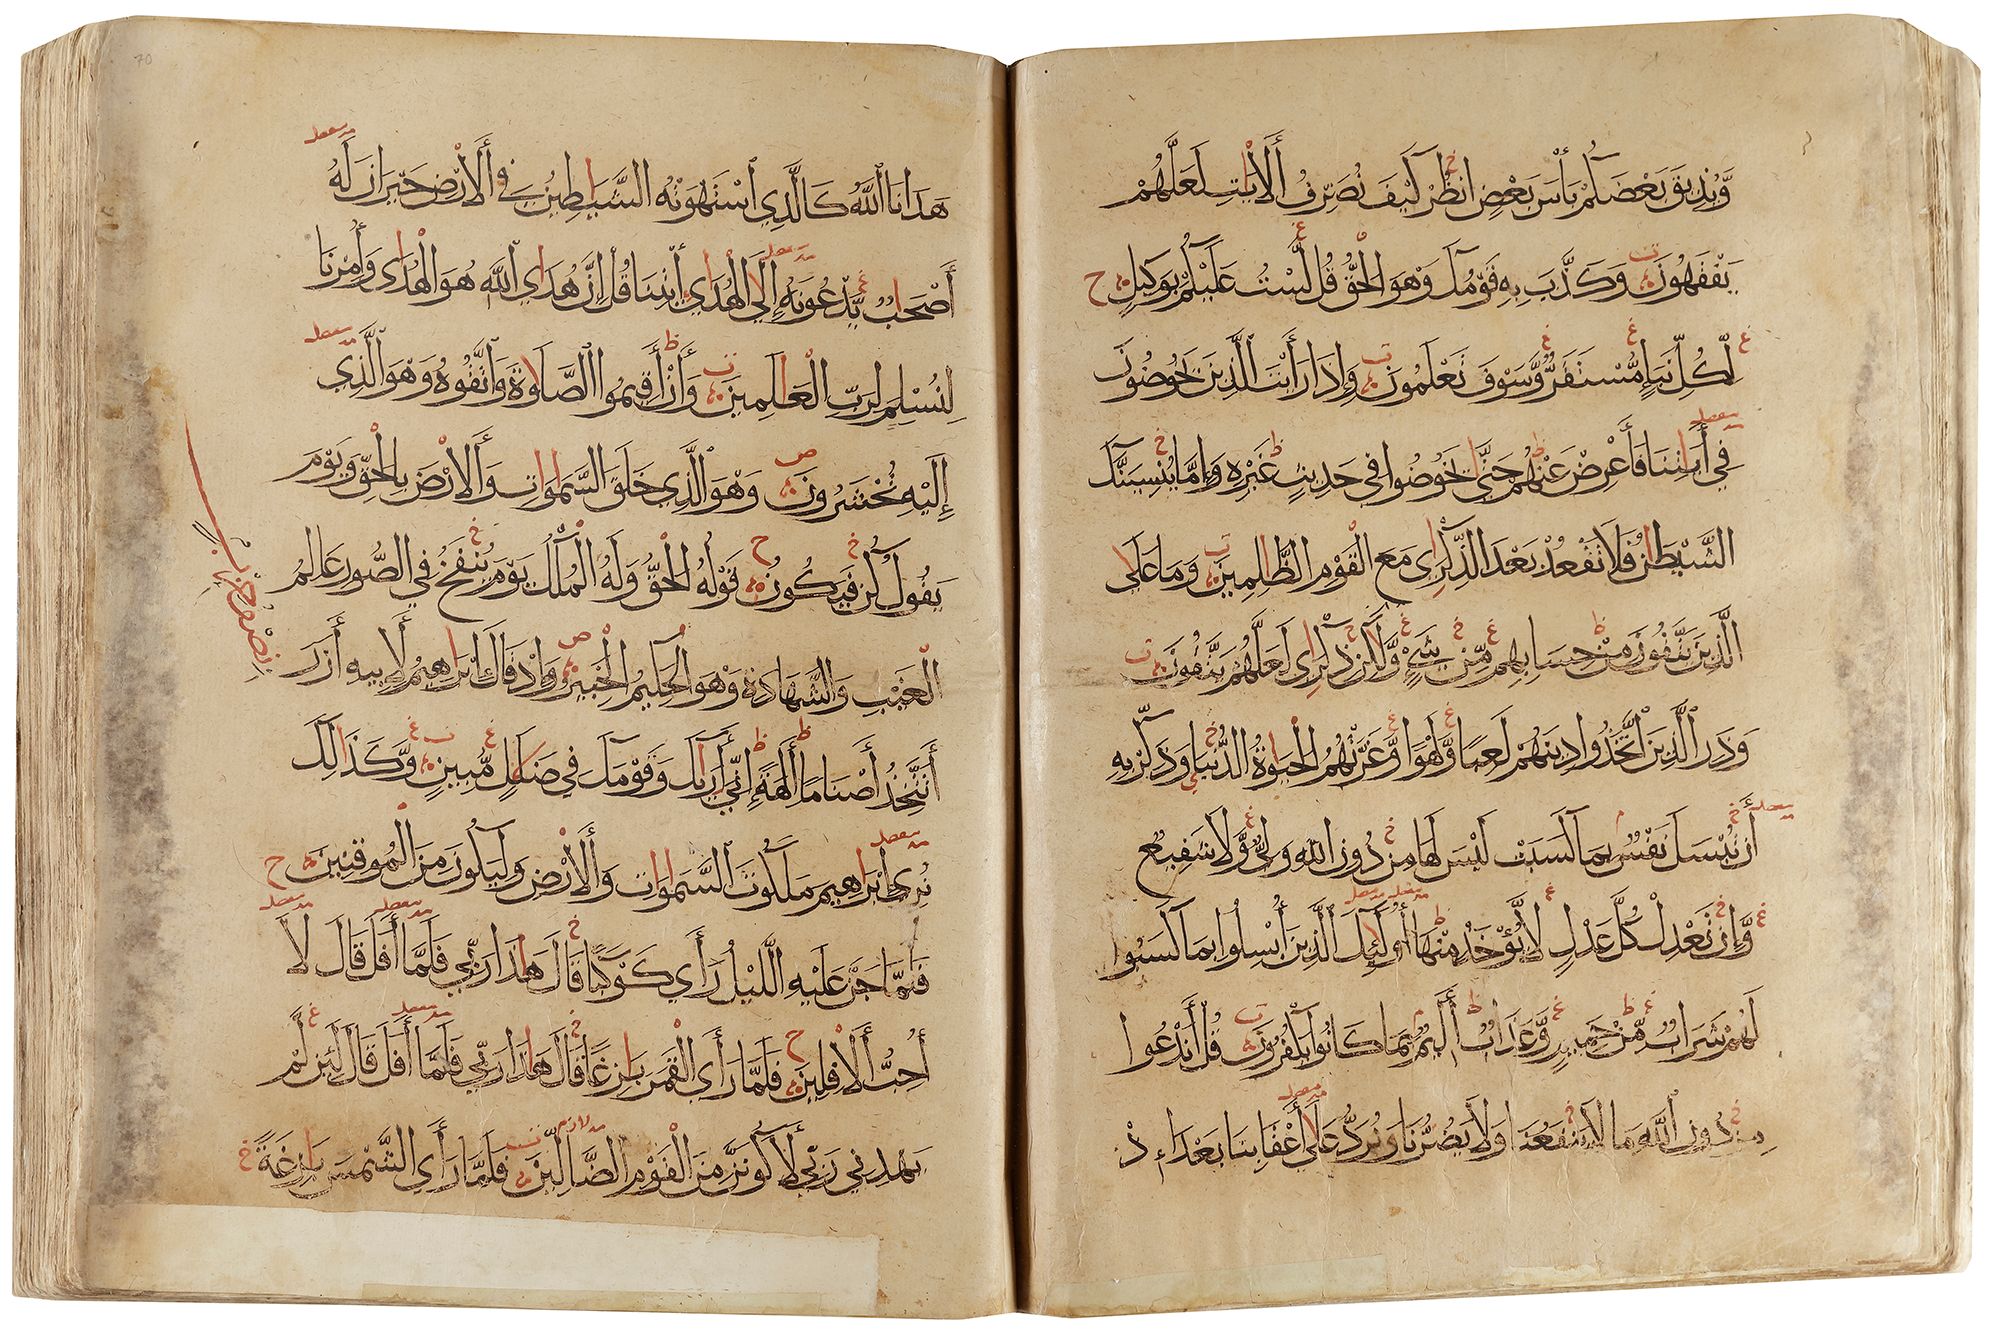 وَّيُذِيقَ بَعْضَكُمْ بَأْسَ بَعْضٍ اُنْظُرْ كَيْفَ نُصَرِّفُ الْأَيَاتِ لَعَلَّهُمْ
يَفْقَهُونَ وَكَذَّبَ بِهِ قَوْمُكَ وَهُوَ الْحَقُّ قُلْ لَسْتُ عَلَيْكُمْ بِوَكِيلٍ
لِكُلِّ نَبَإٍ مُّسْتَقَرٌّ وَّسَوْفَ تَعْلَمُونَ وَإِذَا رَأَيْتَ الَّذِينَ يَخُوضُونَ
فِي أَيَاتِنَا فَأَعْرِضْ عَنْهُمْ حَتَّى يَخُوضُوا فِي حَدِيثٍ غَيْرِهِ وَإِمَّا يُنْسِيَنَّكَ
الشَّيْطَانُ فَلَا تَقْعُدْ بَعْدَ الذِّكْرَى مَعَ الْقَوْمِ الظَّالِمِينَ وَمَا عَلَى
الَّذِينَ يَتَّقُونَ مِنْ حِسَابِهِمْ مِّنْ شَيْءٍ وَّلَكِنْ ذِكْرَى لَعَلَّهُمْ يَتَّقُونَ
وَذَرِ الَّذِينَ اتَّخَذُوا دِينَهُمْ لَعِبًا وَّلَهْوًا وَّغَرَّتْهُمُ الْحَيَوةُ الدُّنْيَا وَذَكِّرْ بِهِ
أَنْ تُبْسَلَ نَفْسٌ بِمَا كَسَبَتْ لَيْسَ لَهَا مِنْ دُونِ اللهِ وَلِيٌّ وَّلَا شَفِيعٌ
وَّإِنْ تَعْدِلْ كُلَّ عَدْلٍ لَا يُؤْخَذْ مِنْهَا أُولَئِكَ الَّذِينَ أُبْسِلُوا بِمَا كَسَبُوا
لَهُمْ شَرَابٌ مِّنْ حَمِيمٍ وَّعَذَابٌ أَلِيمٌ بِمَا كَانُوا يَكْفُرُونَ قُلْ أَنَدْعُوا
مِنْ دُونِ اللهِ مَا لَا يَنْفَعُنَا وَلَا يَضُرُّنَا وَنُرَدُّ عَلَى أَعْقَابِنَا بَعْدَ إِذْ
هَدَانَا اللهُ كَالَّذِي اسْتَهْوَتْهُ الشَّيَاطِينُ فِي الْأَرْضِ حَيْرَانَ لَهُ
أَصْحَابٌ يَّدْعُونَهُ إِلَى الْهُدَى ائْتِنَا قُلْ إِنَّ هُدَى اللهِ هُوَ الْهُدَى وَأُمِرْنَا
لِنُسْلِمَ لِرَبِّ الْعَالَمِينَ وَأَنْ أَقِيمُوا الصَّلَاوةَ وَاتَّقُوهُ وَهُوَ الَّذِي
إِلَيْهِ تُحْشَرُونَ وَهُوَ الَّذِي خَلَقَ السَّمَاوَاتِ وَالْأَرْضَ بِالْحَقِّ وَيَوْمَ
يَقُولُ كُنْ فَيَكُونُ قَوْلُهُ الْحَقُّ وَلَهُ الْمُلْكُ يَوْمَ يُنْفَخُ فِي الصُّورِ عَالِمُ
الْغَيْبِ وَالشَّهَادَةِ وَهُوَ الْحَكِيمُ الْخَبِيرُ وَإِذْ قَالَ ابْرَاهِيمُ لِأَبِيهِ أَزَرَ
أَتَتَّخِذُ أَصْنَامًا أَلِهَةً إِنِّي أَرَاكَ وَقَوْمَكَ فِي ضَلَالٍ مُّبِينٍ وَّكَذَالِكَ
نُرِي ابْرَاهِيمَ مَلَكُوتَ السَّمَاوَاتِ وَالْأَرْضِ وَلِيَكُونَ مِنَ الْمُوقِنِينَ
فَلَمَّا جَنَّ عَلَيْهِ اللَّيْلُ رَأَى كَوْكَبًا قَالَ هَاذَا رَبِّي فَلَمَّا أَفَلَ قَالَ لَا
أُحِبُّ الْأَفِلِينَ فَلَمَّا رَأَى الْقَمَرَ بَازِغًا قَالَ هَاذَا رَبِّي فَلَمَّا أَفَلَ قَالَ لَئِنْ لَّمْ
يَهْدِنِي رَبِّي لَأَكُونَنَّ مِنَ الْقَوْمِ الضَّالِّينَ فَلَمَّا رَأَى الشَّمْسَ بَازِغَةً